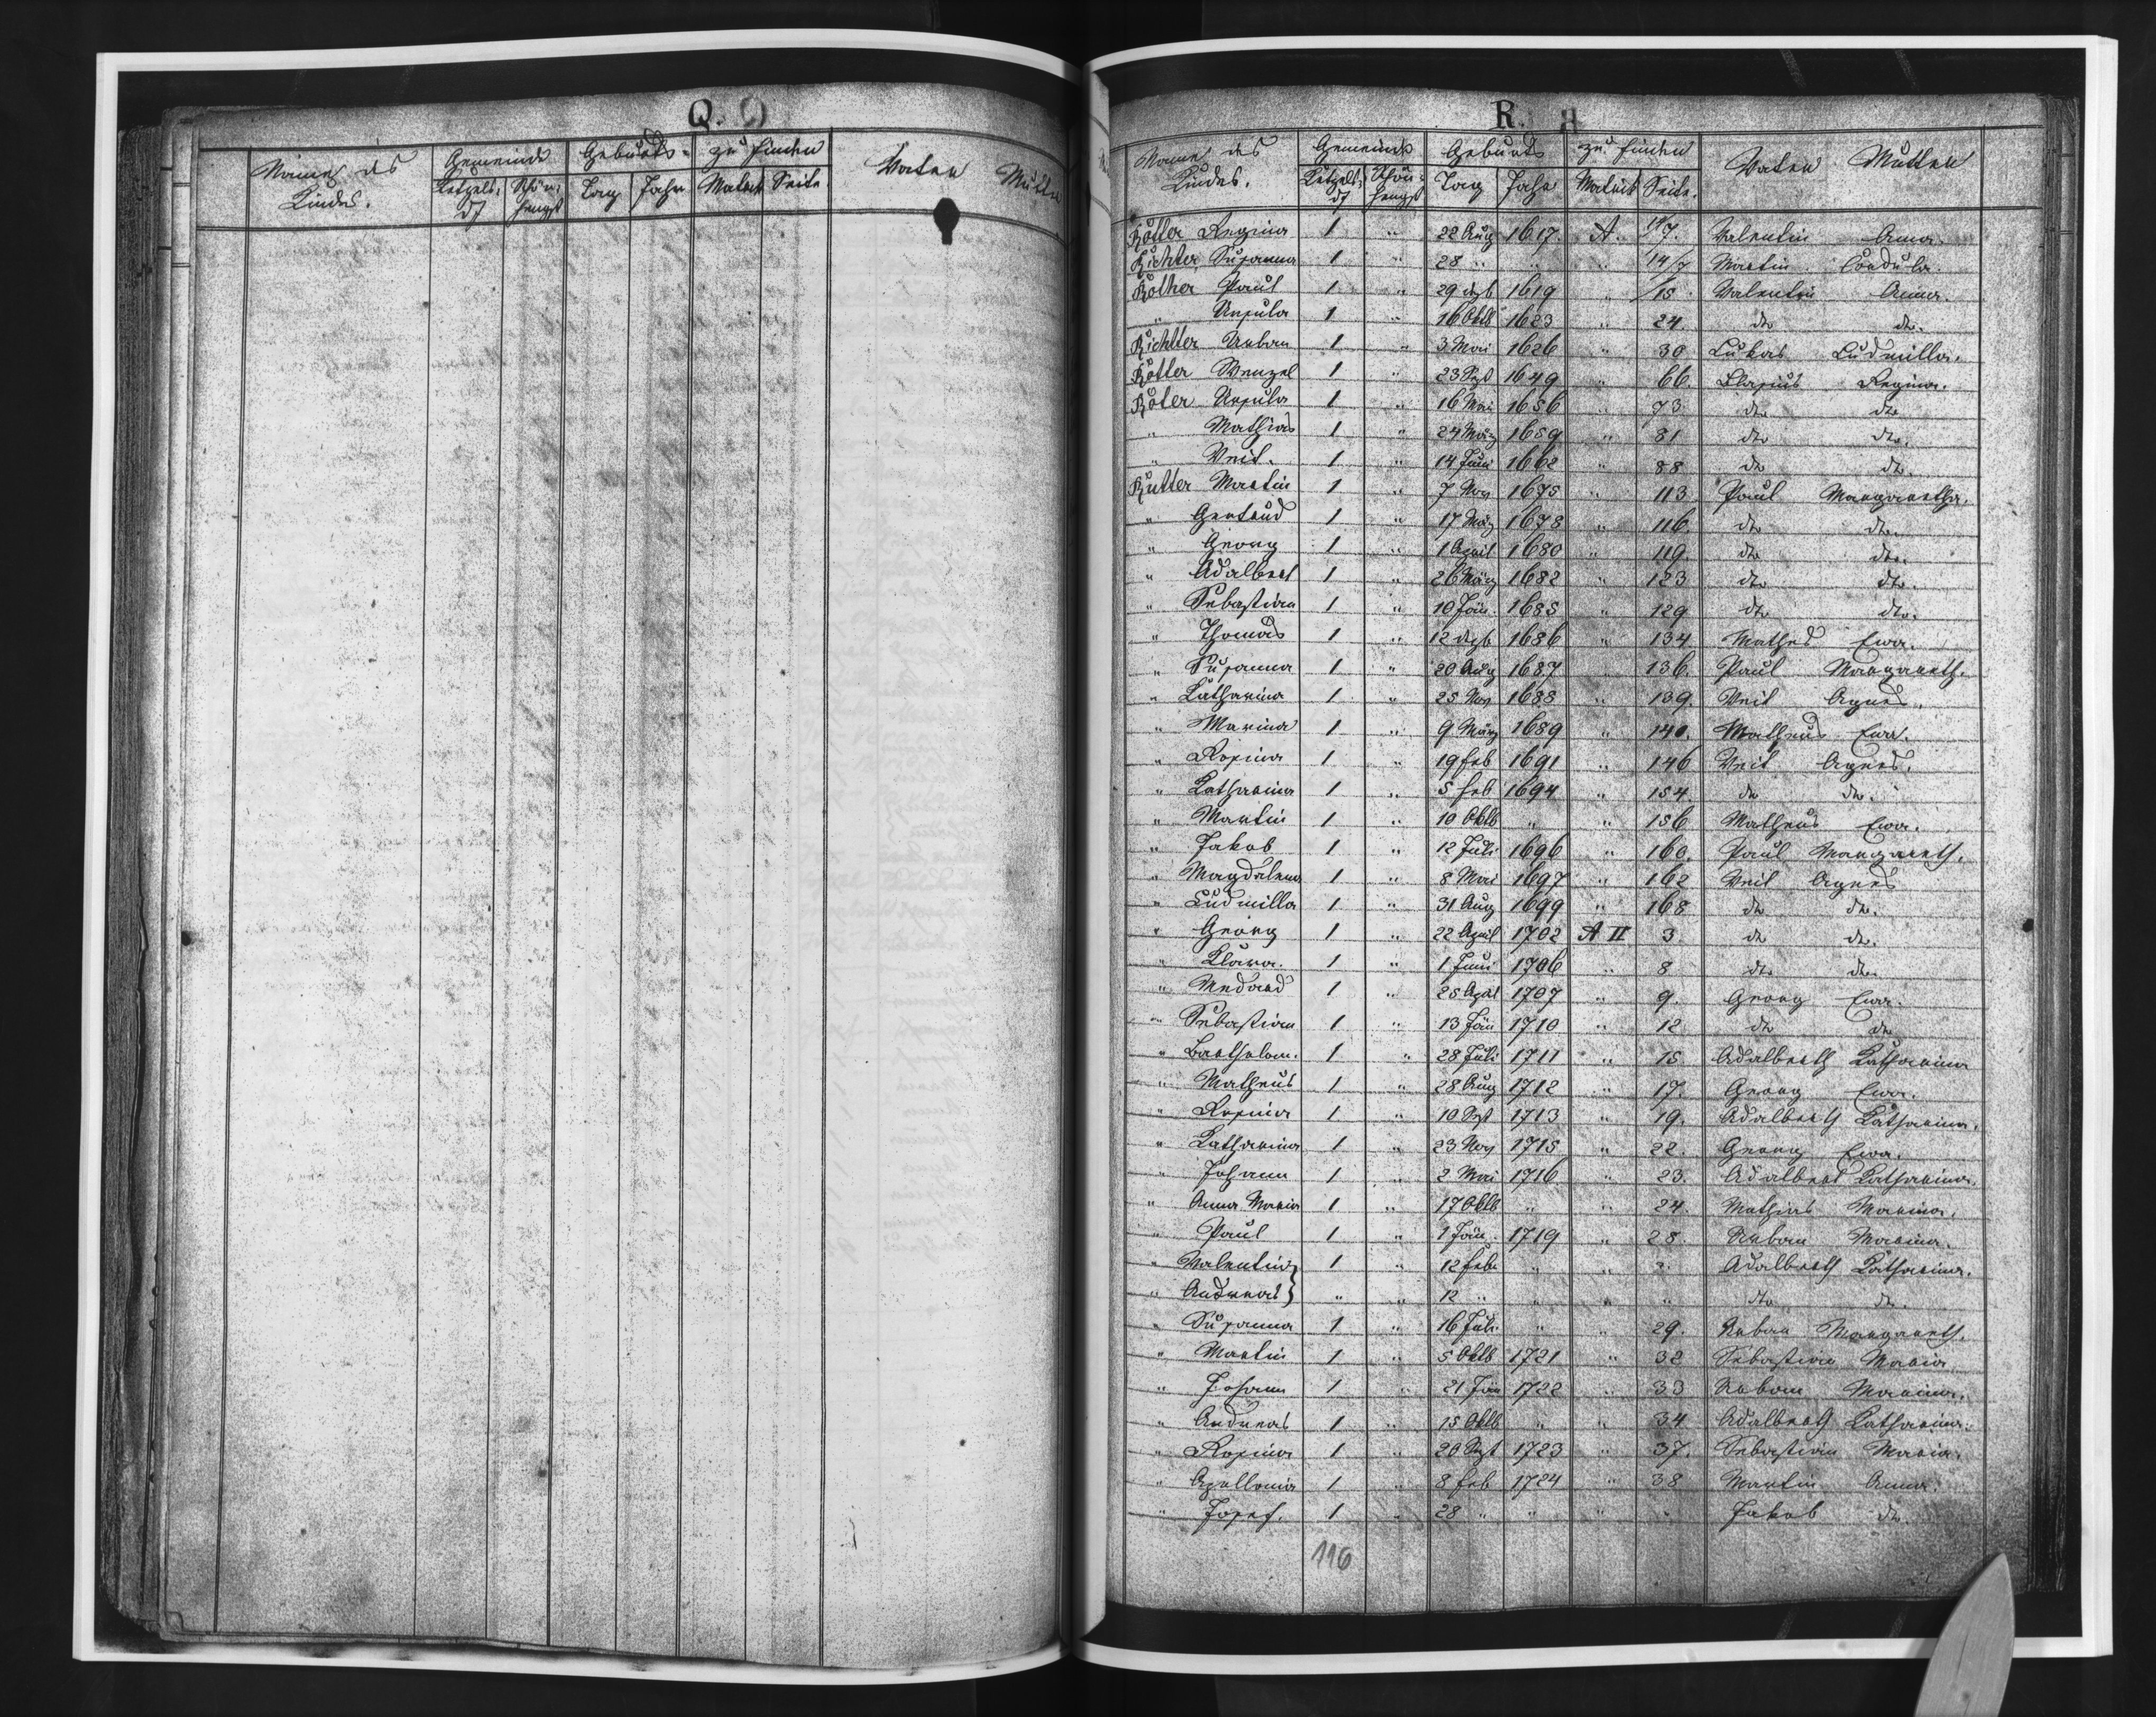 Q.
Name des Kindes. Gemeinde Geburts- zu finden Vater Mutter
Ketzelsdf Schönhengst Tag Jahr Matrik Seite.
R.
Name des Kindes. Gemeinde Geburts zu finden Vater Mutter
Ketzelsdf Schönhengst Tag Jahr Matrik Seite.
Rötter Regina 1 " 22 Aug 1617. A. 14/7. Valentin Anna.
Richter Susanna 1 " 28 " " " 14/7 Martin. Cordula.
Röther Paul 1 " 29 dzb 1619 " /15 Valentin Anna.
" Ursula 1 " 16 Oktb 1623 " 24. dto dto.
Richtter Urban 1 " 3 Mai 1626 " 30 Lukas Ludmilla.
Rötter Wenzel 1 " 23 Sept 1649 " 66. Blasius Regina.
Röter Ursula 1 " 16 Mai 1656 " 73. dto dto
" Mathias 1 " 24 März 1659 " 81 dto dto.
" Veit. 1 " 14 Juni 1662 " 88 dto dto.
Rutter Martin 1 " 7 Nov 1675 " 113. Paul Margaretha.
" Gertrud 1 " 17 März 1678 " 116. dto dto.
" Georg 1 " 1 April 1680 " 119. dto dto.
" Adalbert 1 " 26 März 1682 " 123 dto dto.
" Sebastian 1 " 10 Jän. 1685 " 129 dto dto.
" Thomas 1 " 12 dezb 1686 " 134 Matheus Ewa.
" Susanna 1 " 20 Aug 1687 " 136. Paul Margareth.
" Katharina 1 " 25 Nov 1688 " 139. Veit Agnes.
" Marina 1 " 9 März 1689 " 140. Matheus Ewa.
" Rosina 1 " 19 feb 1691 " 146 Veit Agnes.
" Katharina 1 " 5 feb 1694 " 154 dto dto.
" Martin 1 " 10 Oktb " " 156 Matheus Ewa.
" Jakob 1 " 12 Juli 1696 " 160. Paul Margareth.
" Magdalena 1 " 8 Mai 1697 " 162 Veit Agnes
" Ludmilla 1 " 31 Aug 1699 " 168 dto dto.
" Georg 1 " 22 April 1702 A II 3. dto dto.
" Klara. 1 " 1 Juni 1706 " 8 dto dto.
" Medard 1 " 25 April 1707 " 9. Georg Ewa.
" Sebastian 1 " 13 Jän 1710 " 12 dto dto
" Bartholom. 1 " 28 Juli 1711 " 15 Adalberth Katharina
" Matheus 1 " 28 Aug 1712 " 17. Georg Ewa.
" Rosina 1 " 10 Sept 1713 " 19. Adalberth Katharina.
" Katharina 1 " 23 Nov 1715 " 22. Georg Ewa.
" Johann 1 " 2 Mai 1716 " 23. Adalbert Katharina.
" Anna Maria 1 " 17 Oktb " " 24. Mathias Marina.
" Paul 1 " 1 Jän. 1719 " 28. Urban Marina.
" Valentin } 1 " 12 feb. " " " Adalberth Katharina.
" Andreas } " " 12 " " " " dto dto.
" Susanna 1 " 16 Juli " " 29. Urban Margareth.
" Martin 1 " 5 Oktb 1721 " 32 Sebastian Maria
" Johann 1 " 21 Jän 1722 " 33 Urban Marina.
" Andreas 1 " 15 Oktb " " 34 Adalberth Katharina.
" Rosina 1 " 20 Sept 1723 " 37. Sebastian Maria.
" Apollonia 1 " 8 feb 1724 " 38 Martin Anna.
" Josef. 1 " 28 " " " " Jakob dto.
116